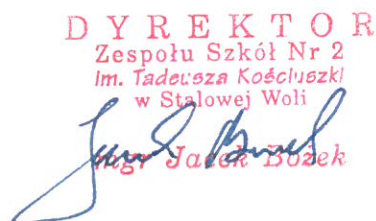 DYREKTOR
Zespołu Szkół Nr 2
Im. Tadeusza Kościuszki
w Stalowej Woli
mgr Jacek Bożek